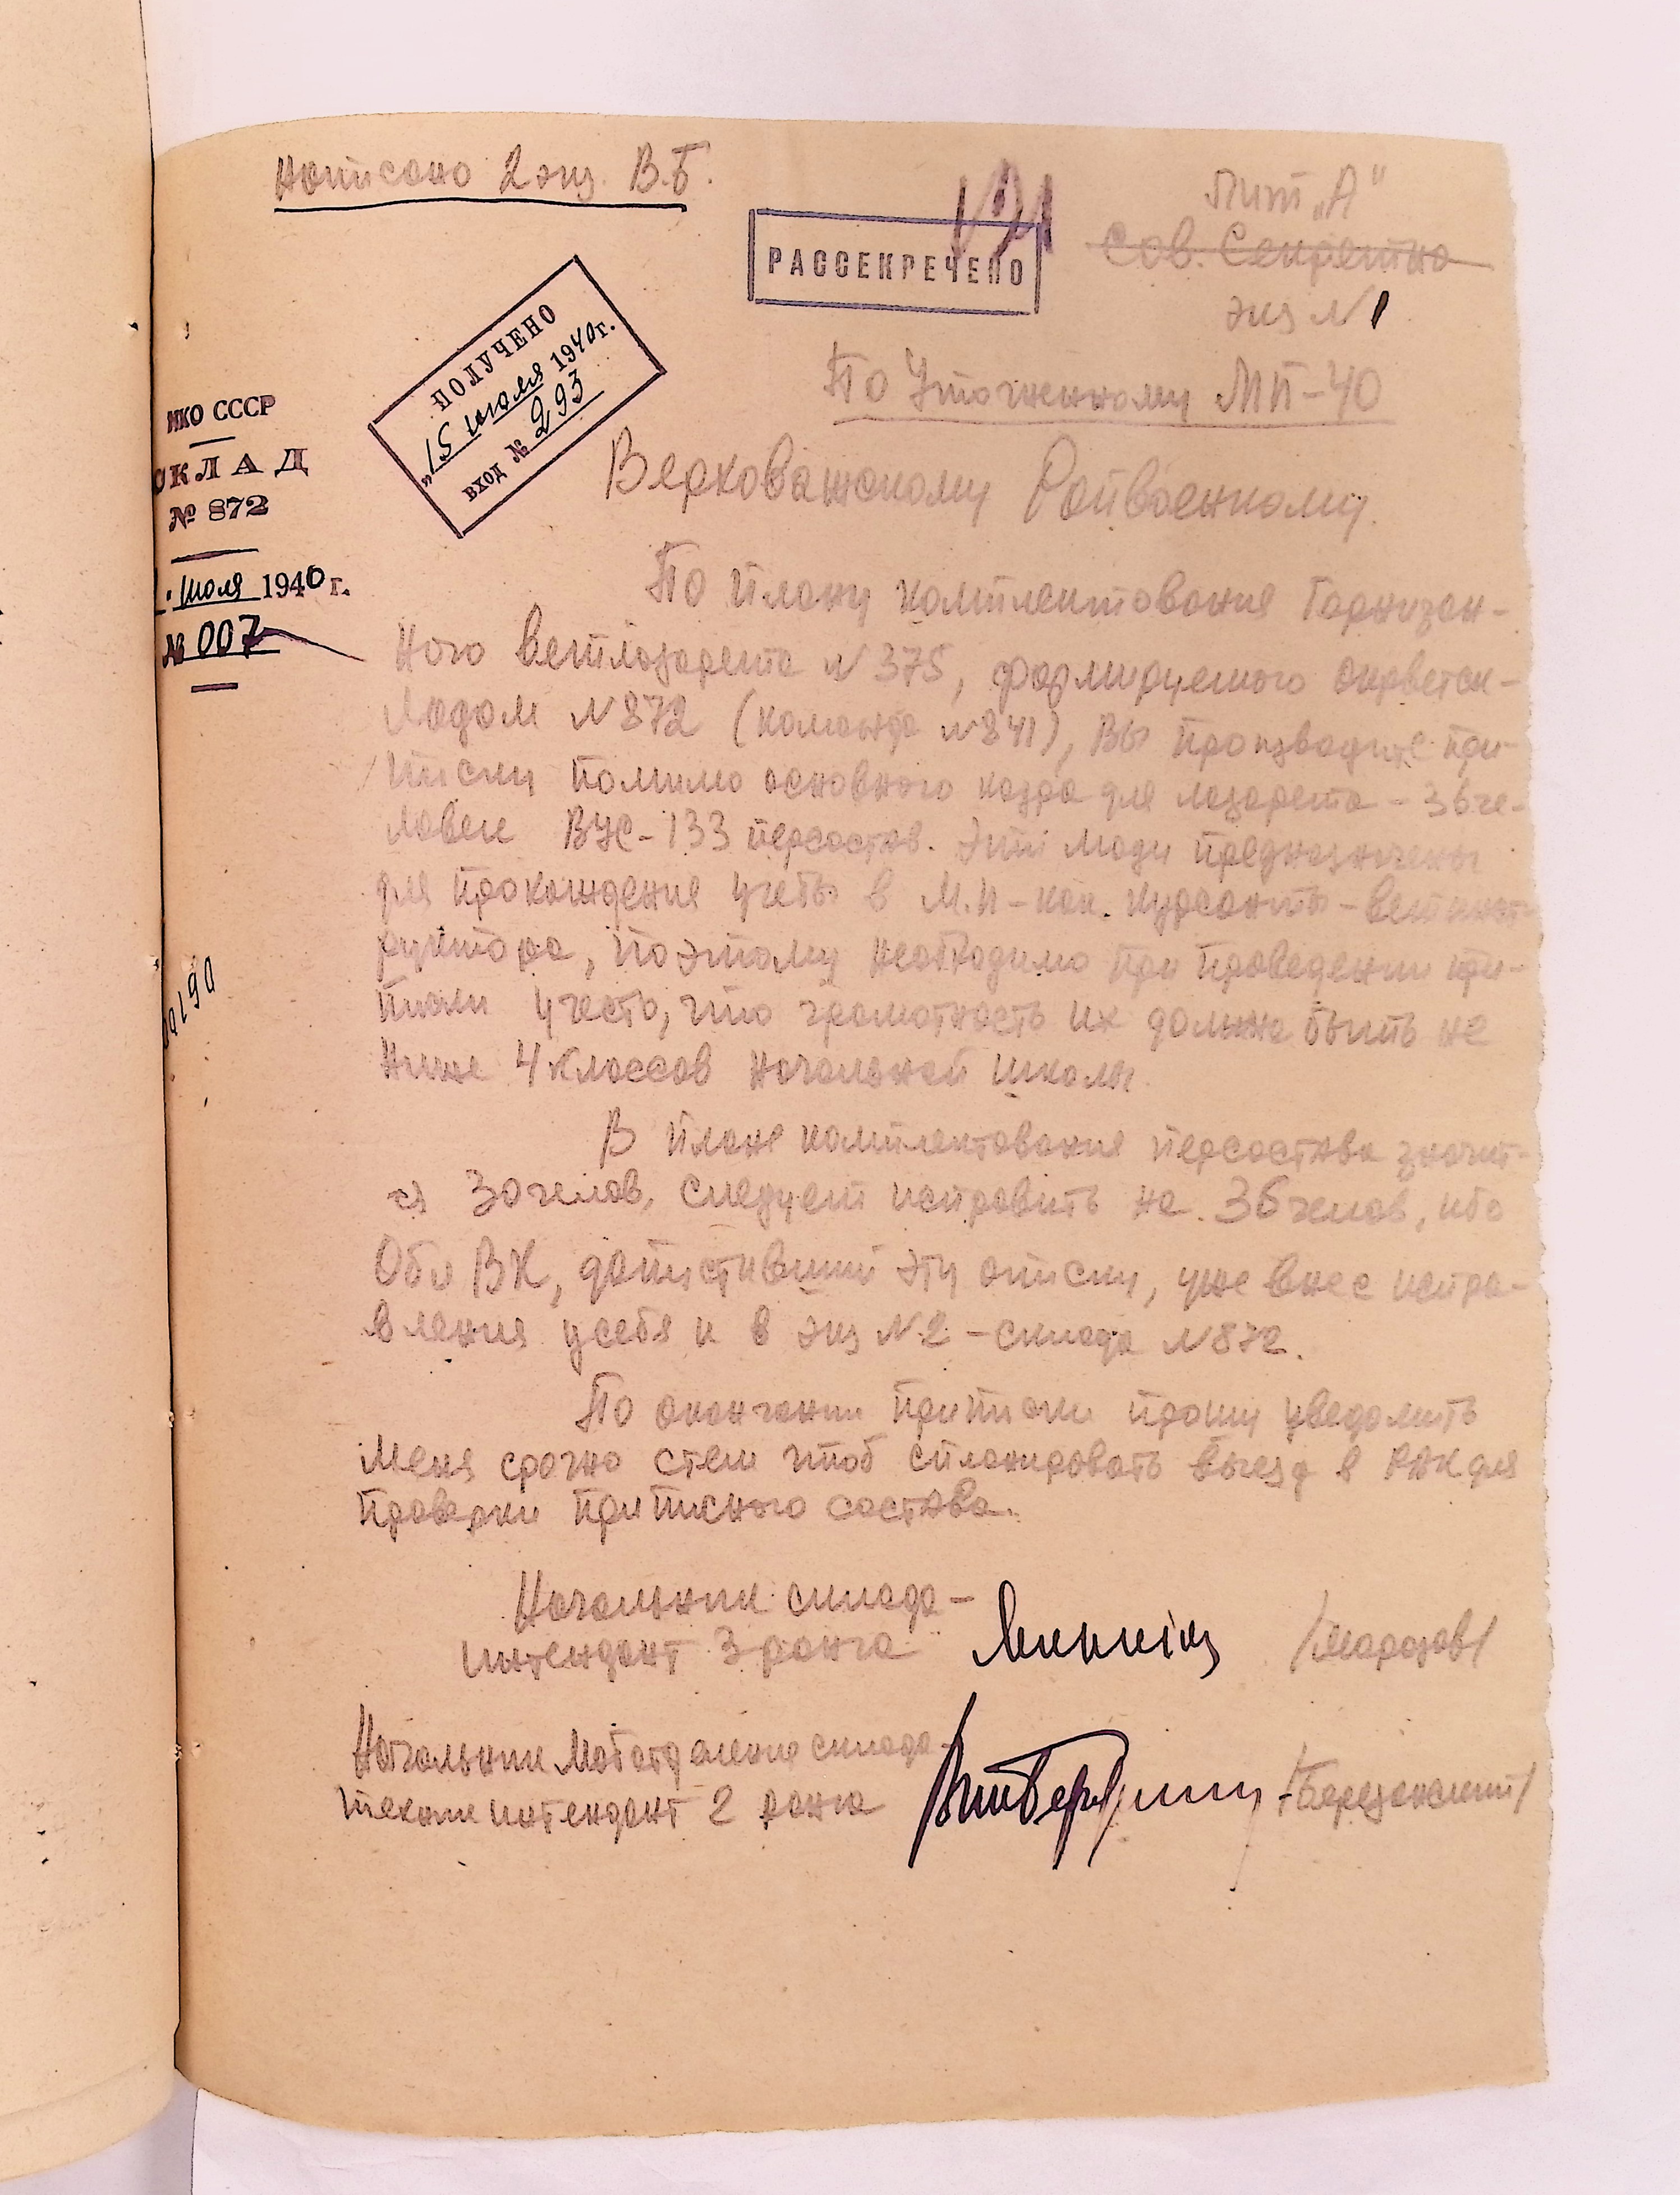 Написано 2 экз. В.Б.
Лит „А"
Сов. Секретно
экз N 1
РАССЕКРЕЧЕНО
ПОЛУЧЕНО
„15 июля 1940г.
ВХОД № 293
НКО СССР
СКЛАД
№ 872
июля 1940 г.
№ 007
По Уточненному МП-40
Верховажскому Райвоенкому.
По плану комплектования Гарнизон-
ного ветлазарета N 375, формируемого окрветск-
ладом N 872 (команда N 841), Вы производите при-
писку помимо основного кадра для лазарета - 36 че-
ловек ВУС-133 персостав. Эти люди предназначены
для прохождения учебы в М.П - как курсанты - ветинст-
руктора, поэтому необходимо при проведении при-
писки учесть, что грамотность их должна быть не
ниже 4 классов начальной школы.
В плане комплектования персостава значит-
ся 30 челов, следует исправить на 36 челов, ибо
Обл ВК, допустивший эту описку, уже внес испра-
вления у себя и в экз N 2 - склада N 872.
По окончании приписки прошу уведомить
меня срочно стем чтоб спланировать выезд в РВК для
проверки приписного состава.
Начальник склада -
интендант 3 ранга /Морозов/
Начальник Моботделения склада -
техник интендант 2 ранга /Березанский/